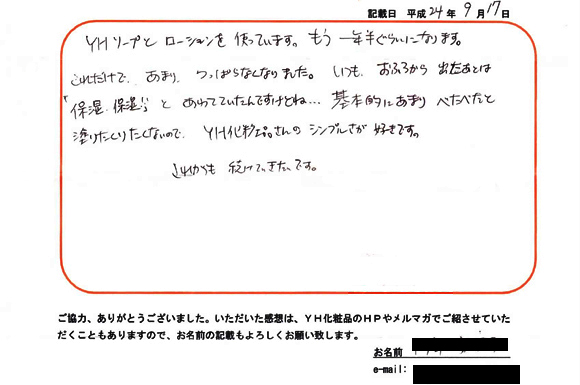 記載日 平成24年 9月17日
YHソープとローションを使っています。もう一年半ぐらいになります。
これだけで、あまり、つっぱらなくなりました。いつも、おふろから出たあとは
「保湿、保湿!!」と あわてていたんですけどね… 基本的にあまり べたべたと
塗りたくりたくないので、YH化粧品さんの シンプルさが 好きです。
これからも 続けていきたいです。
ご協力、ありがとうございました。いただいた感想は、YH化粧品のHPやメルマガでご紹させていた
だくこともありますので、お名前の記載もよろしくお願い致します。
お名前
e-mail: